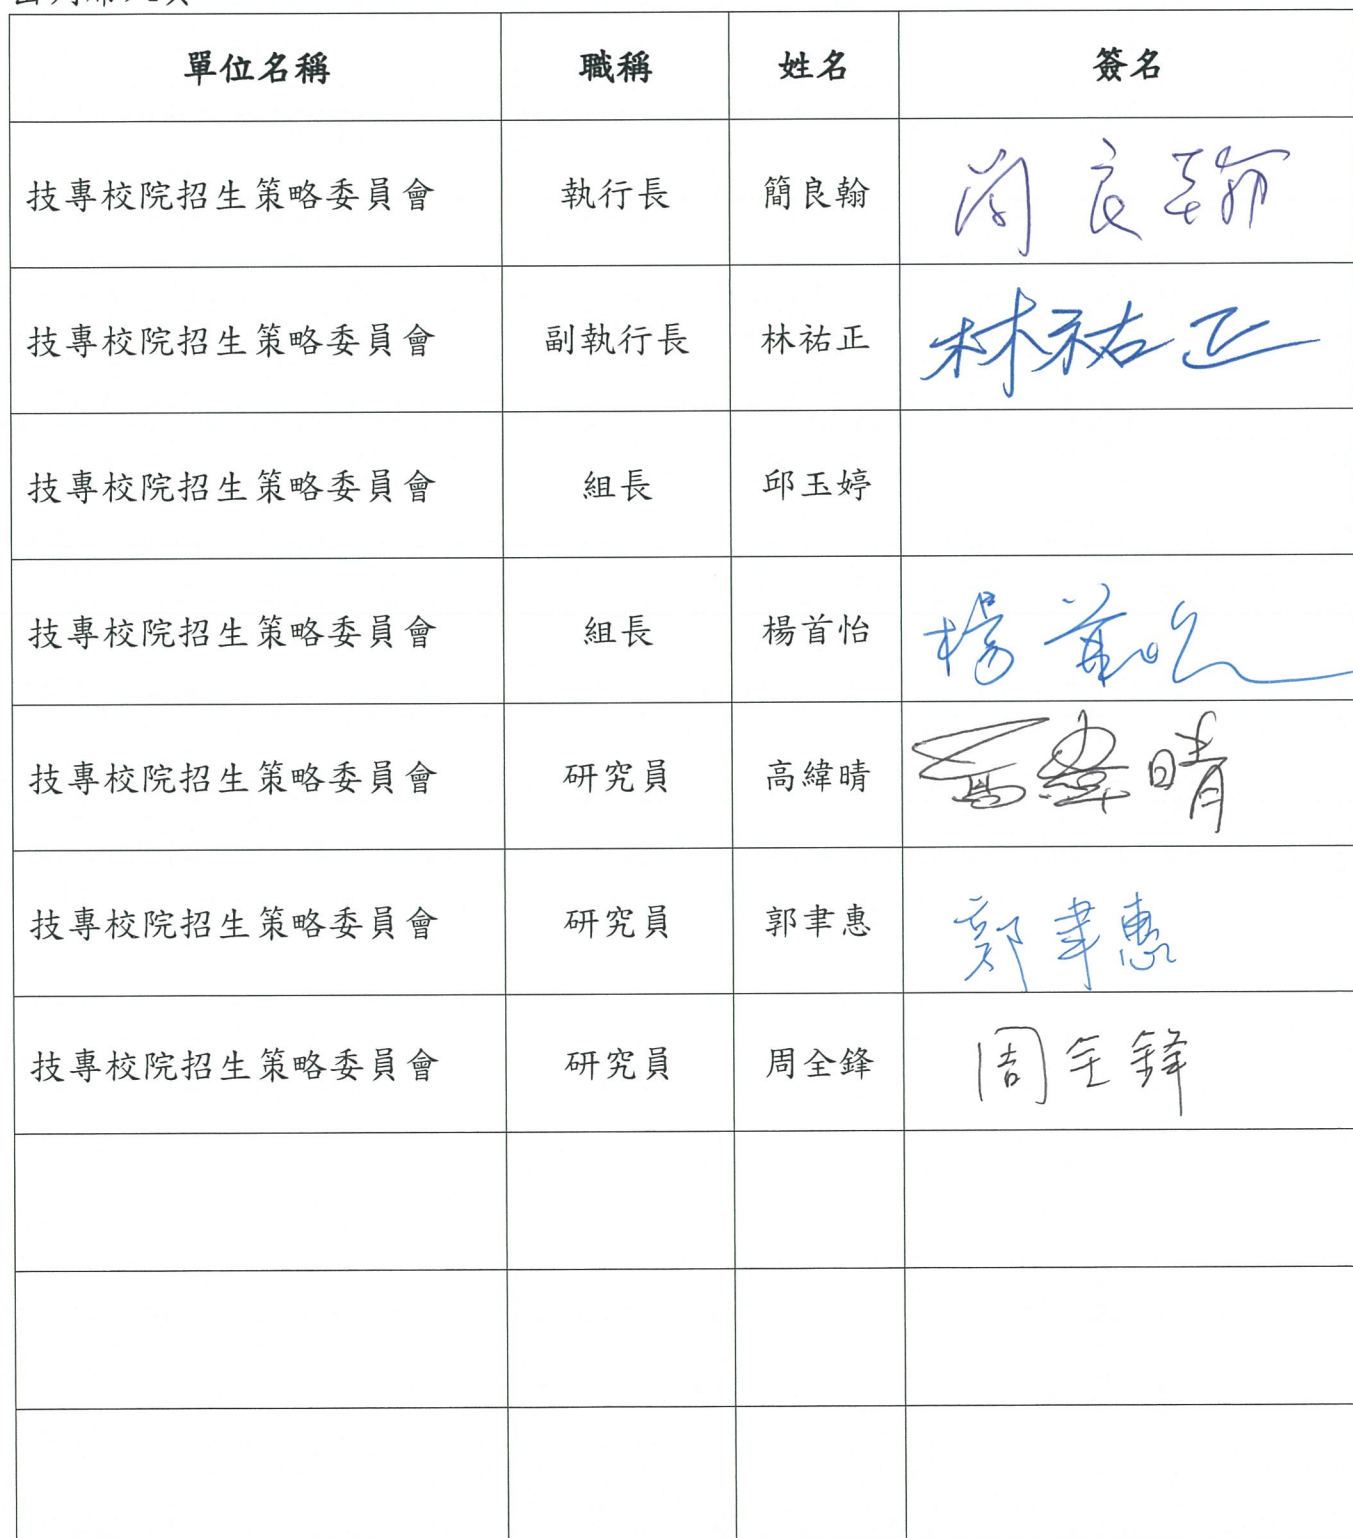 單位名稱 職稱 姓名 簽名
技專校院招生策略委員會 執行長 簡良翰 簡良翰
技專校院招生策略委員會 副執行長 林祐正 林祐正
技專校院招生策略委員會 組長 邱玉婷
技專校院招生策略委員會 組長 楊首怡 楊首怡
技專校院招生策略委員會 研究員 高緯晴 高緯晴
技專校院招生策略委員會 研究員 郭聿惠 郭聿惠
技專校院招生策略委員會 研究員 周全鋒 周全鋒